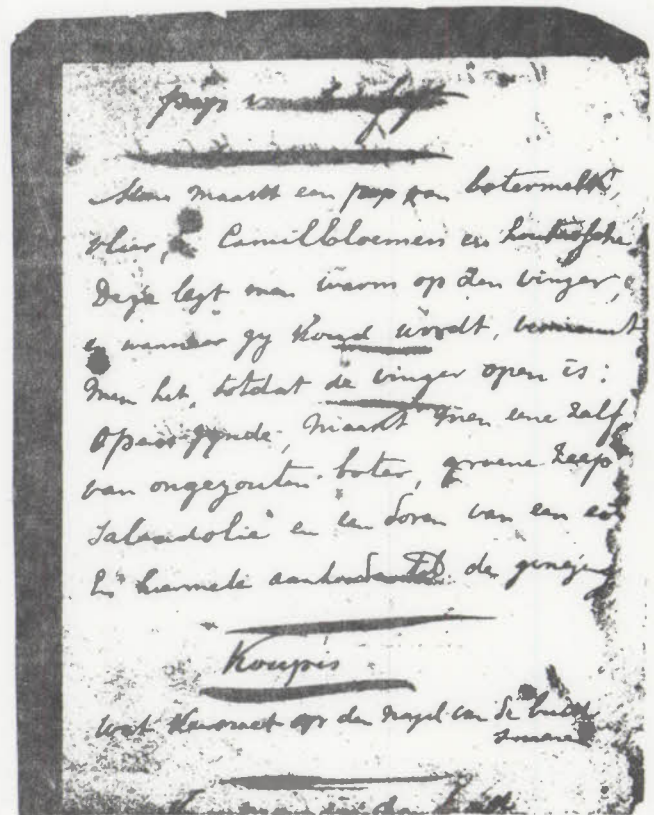 pap
Men maakt een pap van botermelk,
vlier, Camilbloemen en
Deze legt men warm op den vinger,
en wanneer zy koud wordt, vernieuwt
men het, totdat de vinger open is:
Open zynde, maakt men eene zalf
van ongezouten boter, groene zeep
Saladolie en een doren van een
En hiermede aanhouden tot de genezing
Koupis
Wat op den nagel van de
smeren